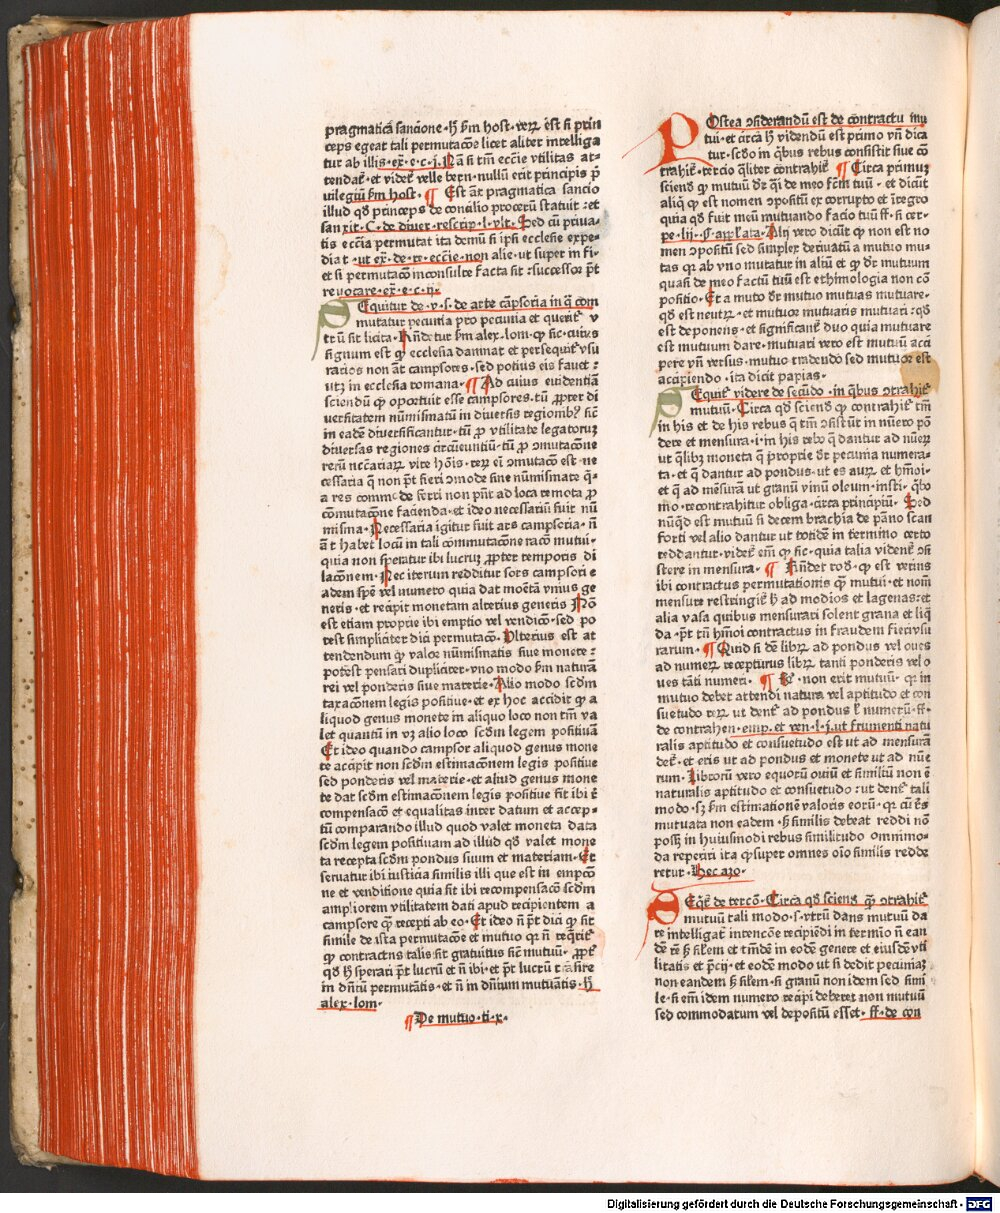 pragmatica sanctione· ħ ẜm host· verū est si prin
ceps egeat tali permutacōe licet aliter intelliga
tur ab illis· ex̄· e· c· i· Nā si tm̄ eccīe vtilitas at-
tendat᷑ et videt᷑ velle bern· nullū erit principis p̄
uilegiū ẜm host· ¶ Est āt pragmatica sancio
illud qd̄ princeps de concilio procerū statuit· et
sanxit· C· de diuer· rescrip· l· vlt· Sed cū priua-
tis eccīa permutat ita domū si ipsi ecclesie expe-
diat· ut ex̄· de· re· eccīe· non alie· ut super in fi·
et si permutacō inconsulte facta sit· successor pt̄
reuocare· ex̄· e· c· ij·
SEquitur de· v· s· de arte cāpsoria in q̄ com
mutatur pecunia pro pecunia et querit᷑ v
trū sit licita· Rn̄detur ẜm alex· lom· ꝙ sic· cuius
signum est ꝙ ecclesia damnat et persequit᷑ vsu
rarios non āt campsores· sed potius eis fauet·
utꝫ in ecclesia romana· ¶ Ad cuius euidentiā
sciendū ꝙ oportuit esse campsores· tū ꝓpter di
uersitatem nūmismatū in diuersis regionibꝫ· sūt
in eadē diuersificantur· tū ꝓ vtilitate legatorꝝ
diuersas regiones circūeuntiū· tū ꝓ ꝯmutacōne
rerū nc̄cāriarꝝ vite hōis· rerꝝ ei ꝯmutacō est· ne
cessaria q̄ non pn̄t fieri ꝯmode sine nūmismate q̄·
a res commode ferri non pn̄t ad loca remota ꝓ
cōmutacōne facienda· et ideo necessariū fuit nū
misma· Necessaria igitur fuit ars campsoria· n̄
āt habet locū in tali commutacōne racō mutui·
quia non speratur ibi lucrū ꝓpter temporis di
lacōnem· Nec iterum redditur sors campsori e
adem spē vel numero quia dat monētā vnius ge
neris· et recipit monetam alterius generis Nō
est etiam proprie ibi emptio vel vendicō· sed po
test simpliciter dici permutacō· Vlterius est at
tendendum ꝙ valor nūmismatis siue monete·
potest pensari dupliciter· vno modo ẜm naturā
rei vel ponderis siue materie· Alio modo scd̄m
taxacōnem legis positiue· et ex hoc accidit ꝙ a
liquod genus monete in aliquo loco non tm̄ va
let quantū in vꝫ alio loco scd̄m legem positiuā
Et ideo quando campsor aliquod genus mone
te accipit non scd̄m estimacōnem legis positiue
sed ponderis vel materie· et aliud genus mone
te dat scd̄m estimacōnem legis positiue fit ibi r̄
compensacō et equalitas inter datum et accep-
tū comparando illud quod valet moneta data
scd̄m legem positiuam ad illud qd̄ valet mone
ta recepta scd̄m pondus suum et materiam· Et
seruatur ibi iusticia similis illi que est in empcōn
ne et venditione quia fit ibi recompensacō scd̄m
ampliorem vtilitatem dati apud recipientem a
campsore ꝙ recepti ab eo· Et ideo n̄ pt̄ dici ꝙ sit
simile de ista permutacōe et mutuo qꝛ n̄ reqͥrit᷑
ꝙ contractus talis sit gratuitus sicut mutuū· ꝓpt᷑
qd̄ ħ sperari pt̄ lucrū et n̄ ibi· et pt̄ lucrū trāsire
in dn̄iū permutātis· et n̄ in dn̄ium mutuātis· ħ
alex· lom·
¶ De mutuo· ti· x·
POstea ꝯsiderandū est de contractu mu
tui· et circa ħ videndū est primo vn̄ dica
tur· scd̄o in qͥbus rebus consistit siue cō
trahit᷑· tercio qͣliter contrahit᷑ ¶ Circa primū
sciend̄ ꝙ mutuū dr̄ qͣsi de meo fcm̄ tuū· et dicūt
aliq̄ ꝙ est nomen ꝯpositū ex corrupto et īregro
quia qd̄ fuit meū mutuando facio tuū ff· si cer·
pe· lij· ¶ appellata· Alij vero dicūt ꝙ non est no
men ꝯpositū sed simplex deriuatū a mutuo mu-
tas qꝛ ab vno mutatur in aliū et ꝙ dr̄ mutuum
quasi de meo factū tuū est ethimologia non cō
positio· Et a muto dr̄ mutuo mutuas mutuare·
qd̄ est neutrꝝ· et mutuor mutuaris mutuari· qd̄
est deponens· et significant duo quia mutuare
est mutuum dare· mutuari vero est mutuū acci
pere vn̄ versus· mutuo tradendo sed mutuor est
accipiendo· ita dicit papias·
SEquit᷑ videre de secūdo· in qͥbus ꝯtrahit᷑
mutuū· Circa qd̄ sciend̄ ꝙ contrahit᷑ tm̄
in his et de his rebus q̄ tm̄ ꝯsistūt in nūero pō
dere et mensura· i· in his rebꝰ q̄ dantur ad nūerꝝ
ut qͣlibꝫ moneta q̄ proprie dr̄ pecunia numera-
ta· et q̄ dantur ad pondus· ut es aurꝝ et hm̄oi·
et q̄ ad mēsurā ut granū vinū oleum· insti· qͥbꝰ
mo· re contrahitur obliga· circa principiū· Sed
nūqͥd est mutuū si decem brachia de pāno scar
forti vel alio dantur ut totidē in termino certo
reddantur· videt᷑ em̄ ꝙ sic· quia talia vident᷑ ꝯsi
stere in mensura· ¶ Rn̄det rod̄· ꝙ est verius
ibi contractus permutationis ꝙ mutui· et nom̄
mensure restringit᷑ ħ ad modios et lagenas· et
alia vasa quibus mensurari solent grana et liq̄
da· pt̄ tn̄ hm̄oi contractus in fraudem fieri vsu
rarum· ¶ Quid si dē librꝝ ad pondus vel oues
ad numerꝝ recepturus librꝝ tanti ponderis vel o
ues tāti numeri· ¶ R̄· non erit mutuū· qꝛ in
mutuo debet attendi natura vel aptitudo et con
suetudo rerꝝ ut dent᷑ ad pondus ł numerū· ff·
de contrahen· emp· et ven· l· j· ut frumenti natu
ralis aptitudo et consuetudo est ut ad mensurā
det᷑· et eris ut ad pondus et monete ut ad nūe
rum· Librorū vero equorū ouiū et similiū non ē
naturalis aptitudo et consuetudo· ut dent᷑ tali
modo· sꝫ ẜm estimationē valoris eorū· qꝛ cū r̄es
mutuata non eadem· sꝫ similis debeat reddi nō
possꝫ in huiusmodi rebus similitudo omnimo·
da reperiri ita ꝙ super omnes oīo similis redde
retur· Hec azo·
SEqͥt᷑ de tercō· Circa qd̄ sciend̄ qꝛ ꝯtrahit᷑
mutuū tali modo· s· vtrū dans mutuū da
re intelligat᷑ intencōe recipiēdi in termīo n̄ ean
dē rē sꝫ silem et tn̄dē in eodē genere et eiusdē vti
litatis et p̄cij· et eodē modo ut si dedit pecuniaꝫ
non eandem sꝫ silem· si granū non idem sed simi
le· si em̄ idem numero recipi deberet non mutuū
sed commodatum vel depositū esset· ff· de con
Digitalisierung gefördert durch die Deutsche Forschungsgemeinschaft · DFG